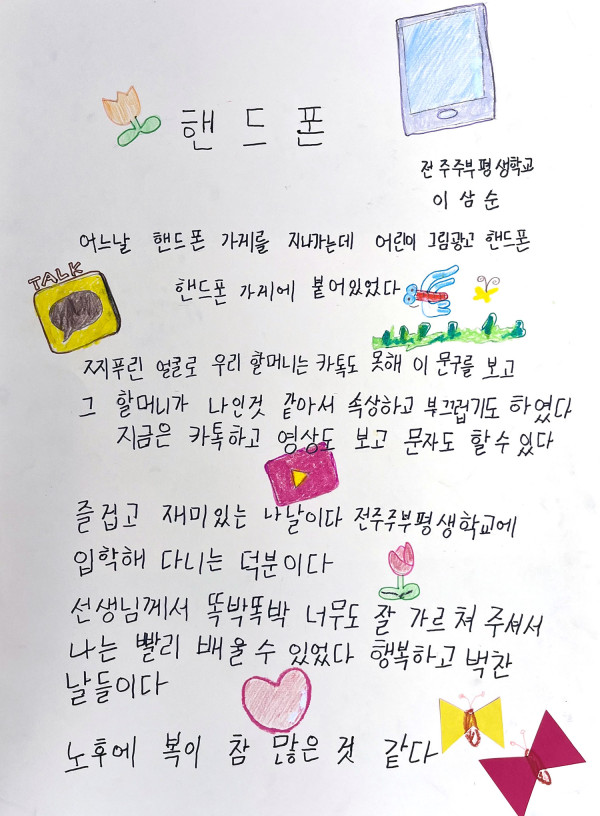 핸드폰
전주주부평생학교
이삼순
어느날 핸드폰 가게를 지나가는데 어린이 그림광고 핸드폰
핸드폰 가게에 붙어있었다
TALK
찌푸린 얼굴로 우리 할머니는 카톡도 못해 이 문구를 보고
그 할머니가 나인것 같아서 속상하고 부끄럽기도 하였다
지금은 카톡하고 영상도 보고 문자도 할 수 있다
즐겁고 재미있는 나날이다 전주주부평생학교에
입학해 다니는 덕분이다
선생님께서 똑박똑박 너무도 잘 가르쳐 주셔서
나는 빨리 배울 수 있었다 행복하고 벅찬
날들이다
노후에 복이 참 많은 것 같다